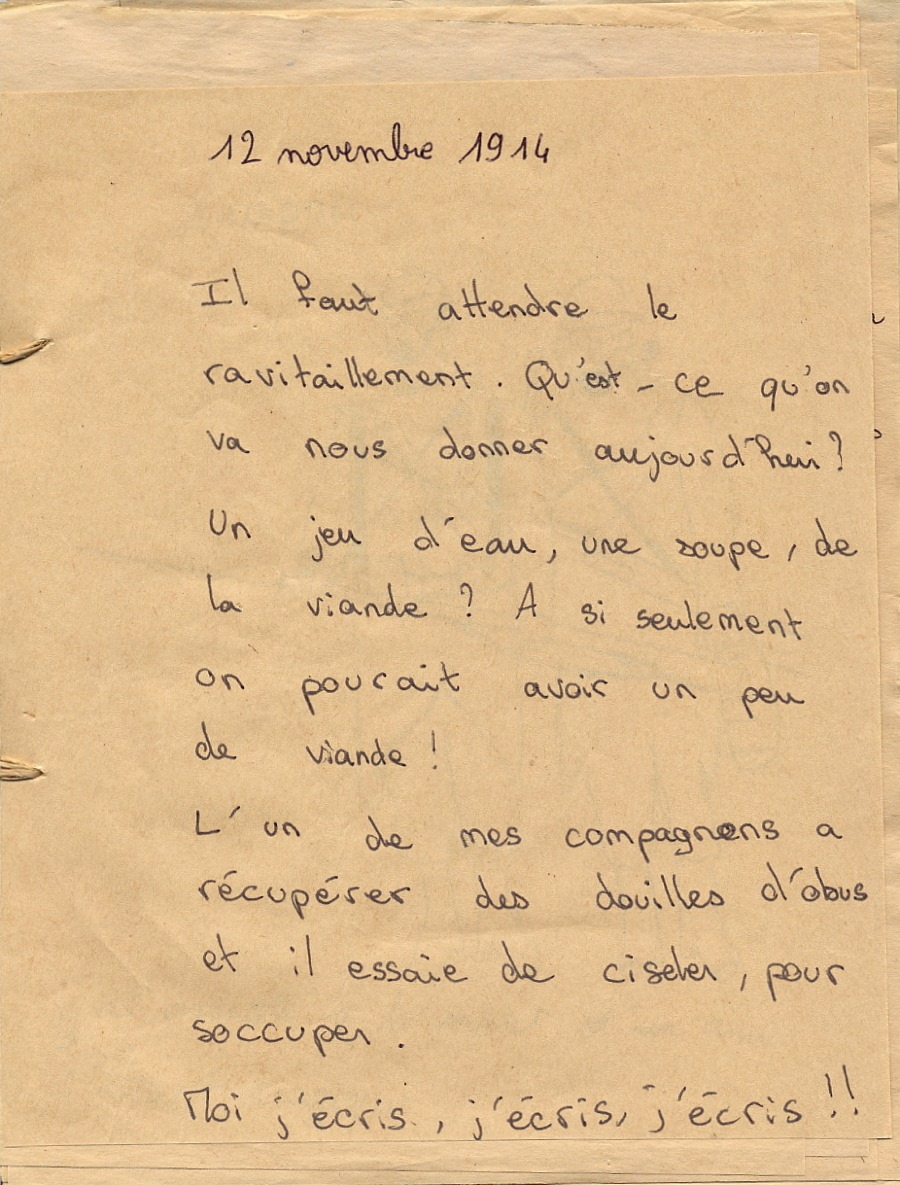 12 novembre 1914
Il faut attendre le
ravitaillement. Qu'est-ce qu'on
va nous donner aujourd'hui?
Un jeu d'eau, une soupe, de
la viande? A si seulement
on pourait avoir un peu
de viande!
L'un de mes compagnons a
récupérer des douilles d'obus
et il essaie de ciseler, pour
soccuper.
Moi j'écris, j'écris, j'écris!!